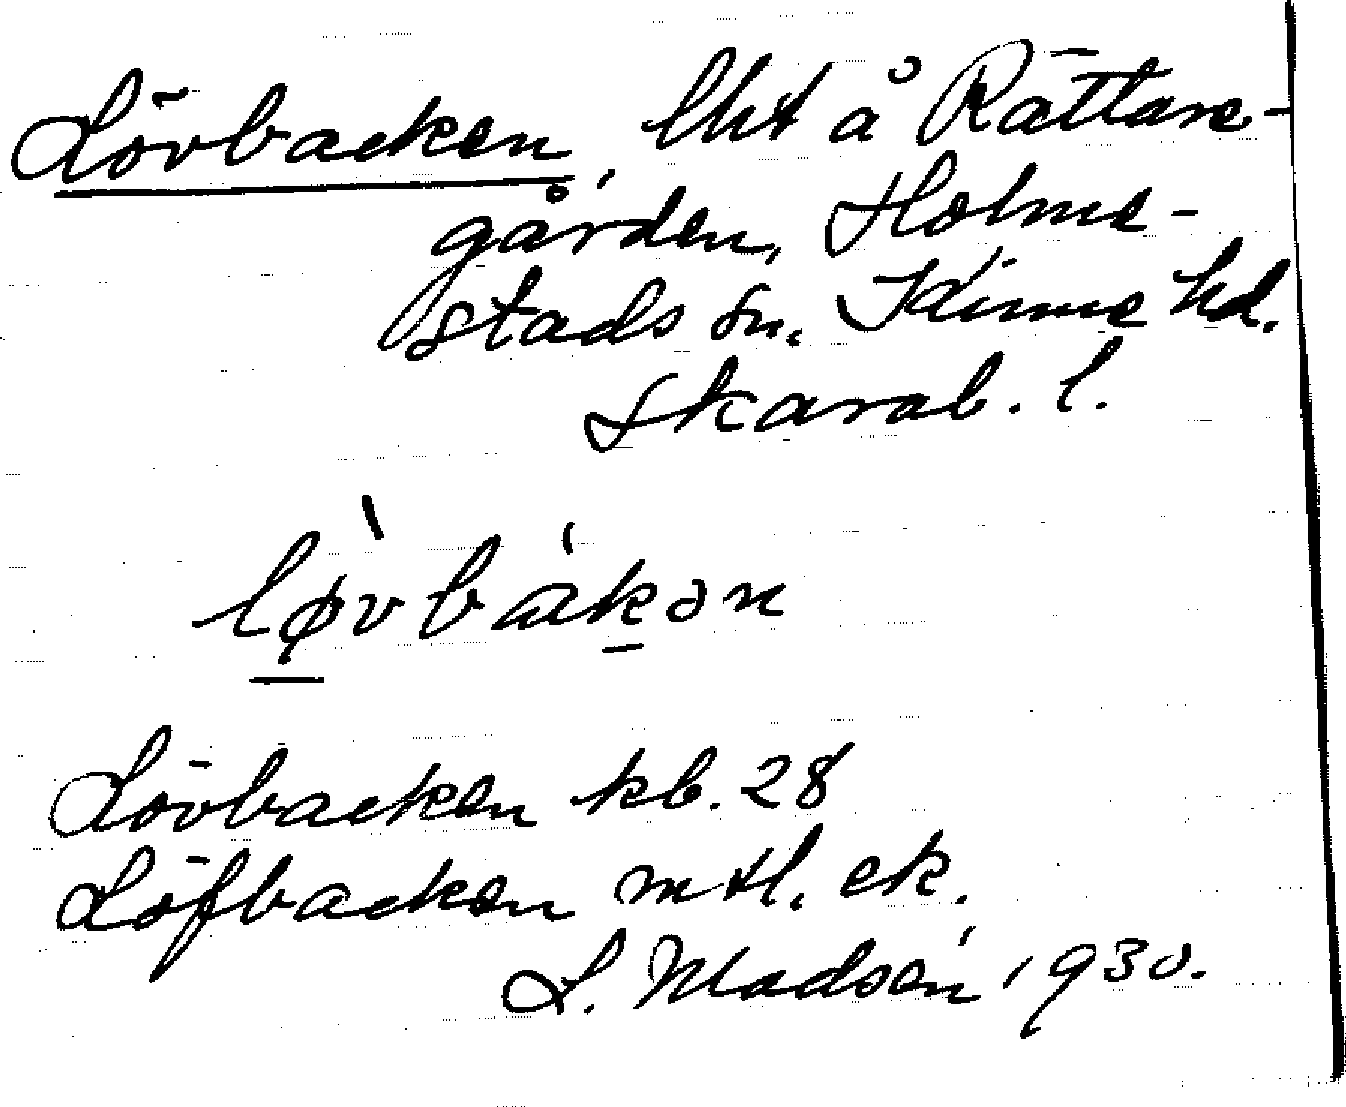 Lövbacken, lht å Rättare-
gården, Holme-
stads sn. Kinne hd.
Skarab. l.
lø̀vbákən
Lövbacken kb. 28
Löfbacken mtl. ek.
L. Madsén, 1930.